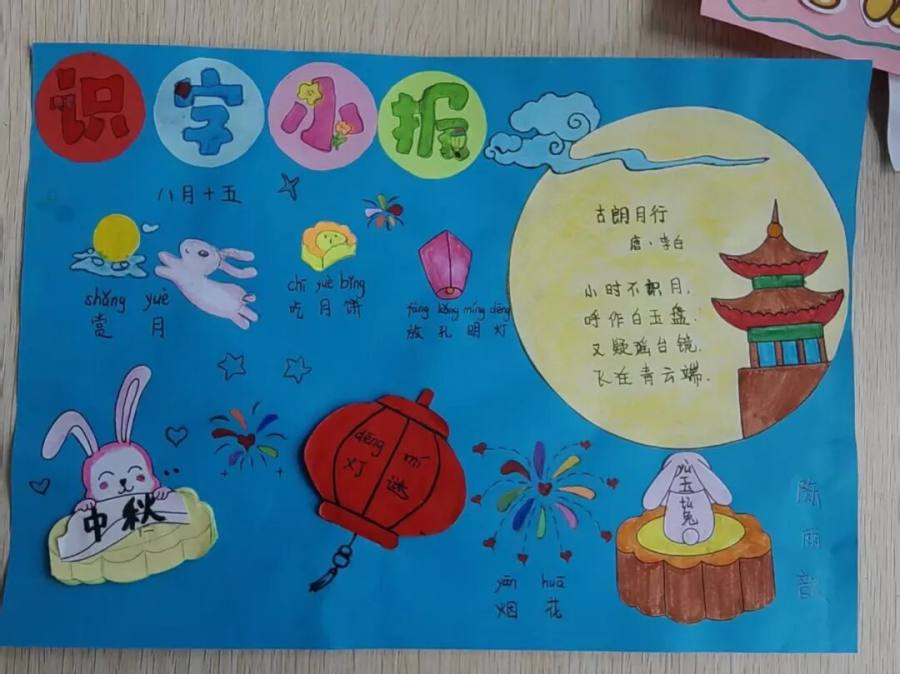 识字小报
八月十五
shǎng yuè
赏 月
chī yuè bǐng
吃 月 饼
fàng kǒng míng dēng
放 孔 明 灯
古朗月行
唐·李白
小时不识月,
呼作白玉盘.
又疑瑶台镜,
飞在青云端.
中秋
dēng mí
灯 谜
yān huā
烟 花
玉兔
陈雨